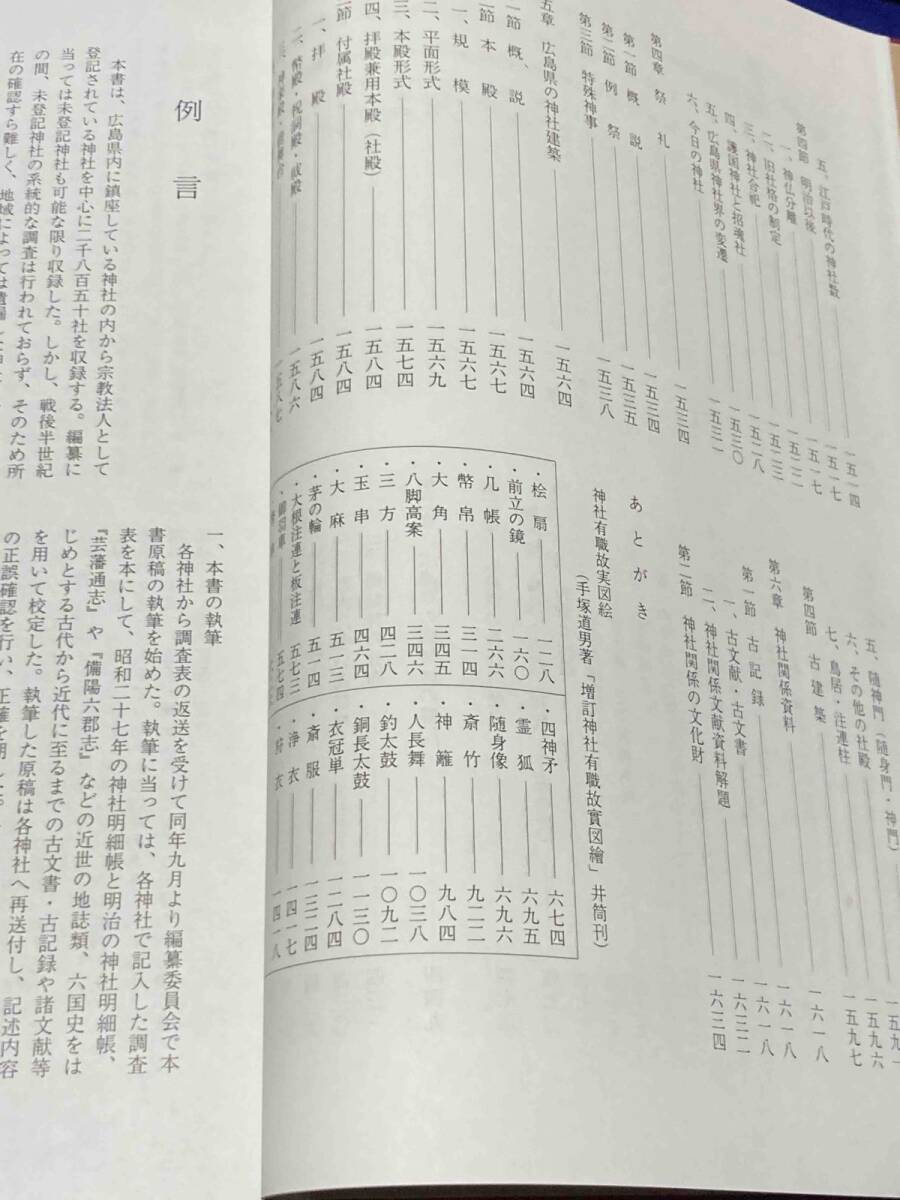 五、江戸時代の神社数 一五一四
第四節 明治以後 一五一七
一、神仏分離 一五一七
二、旧社格の制定 一五二二
三、神社合祀 一五二八
四、護国神社と招魂社 一五三〇
五、広島県神社界の変遷 一五三一
六、今日の神社 一五三四
第四章 祭礼
第一節 概説 一五三四
第二節 例祭 一五三五
第三節 特殊神事 一五三八
五章 広島県の神社建築 一五六四
一節 概説、 一五六四
二節 本殿 一五六七
一、規模 一五六七
二、平面形式 一五六九
三、本殿形式 一五七四
四、拝殿兼用本殿(社殿) 一五八四
節 付属社殿 一五八四
一、拝殿 一五八四
二、幣殿・祝詞殿・祓殿 一五八六
一五八七
五、随神門(随身門・神門) 一五九一
六、その他の社殿 一五九六
七、鳥居・注連柱 一五九七
第四節 古建築 一六一八
第六章 神社関係資料
第一節 古記録 一六一八
一、古文献・古文書 一六一八
二、神社関係文献資料解題 一六三二
第二節 神社関係の文化財 一六三四
あとがき
神社有職故実図絵
(手塚道男著「増訂神社有職故實図繪」井筒刊)
・桧扇 一二八
・前立の鏡 一六〇
・几帳 二六六
・幣帛 三一四
・大角 三四五
・八脚高案 三四六
・三方 四二八
・玉串 四六四
・大麻 五一三
・茅の輪 五一四
・大根注連と板注連 五七三
五七四
・四神矛 六七四
・霊狐 六九五
・随身像 六九六
・斎竹 九二二
・神籬 九八四
・人長舞 一〇三八
・釣太鼓 一〇九二
・銅長太鼓 一一三〇
・衣冠単 一二八四
・斎服 一三二四
・浄衣 一四一七
・狩衣 一四一八
例言
本書は、広島県内に鎮座している神社の内から宗教法人として
登記されている神社を中心に二千八百五十社を収録する。編纂に
当っては未登記神社も可能な限り収録した。しかし、戦後半世紀
の間、未登記神社の系統的な調査は行われておらず、そのため所
在の確認すら難しく、地域によっては
一、本書の執筆
各神社から調査表の返送を受けて同年九月より編纂委員会で本
書原稿の執筆を始めた。執筆に当っては、各神社で記入した調査
表を本にして、昭和二十七年の神社明細帳と明治の神社明細帳、
『芸藩通志』や『備陽六郡志』などの近世の地誌類、六国史をは
じめとする古代から近代に至るまでの古文書・古記録や諸文献等
を用いて校定した。執筆した原稿は各神社へ再送付し、記述内容
の正誤確認を行い、正確を期した。